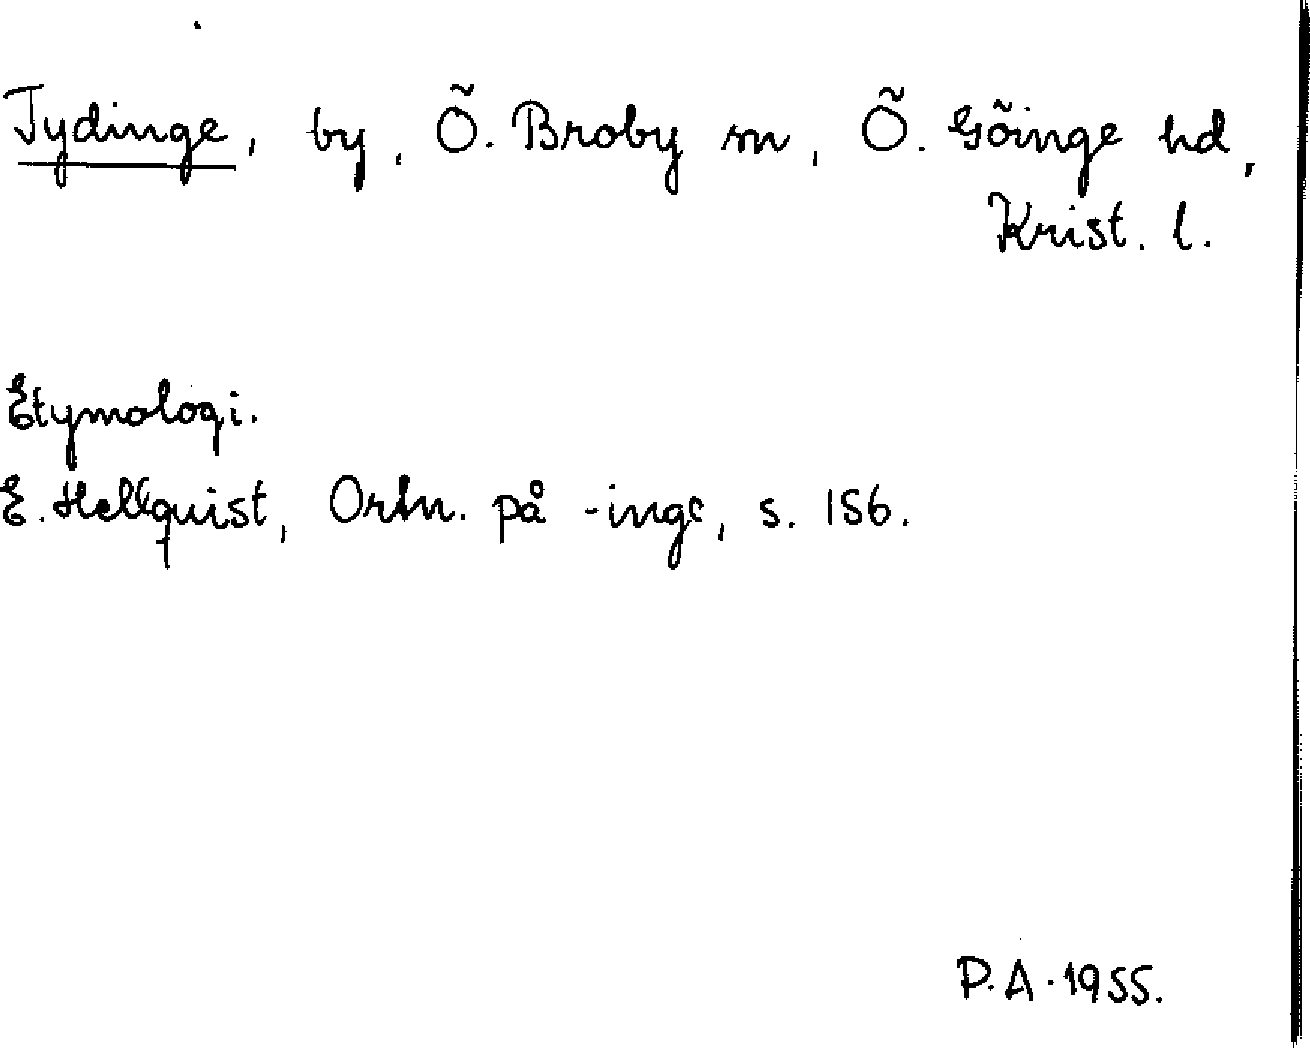 Tydinge, by, Ö. Broby sn, Ö. Göinge hd,
Krist. l.
Etymologi.
E. Hellquist, Ortn. på -inge, s. 156.
P.A. 1955.